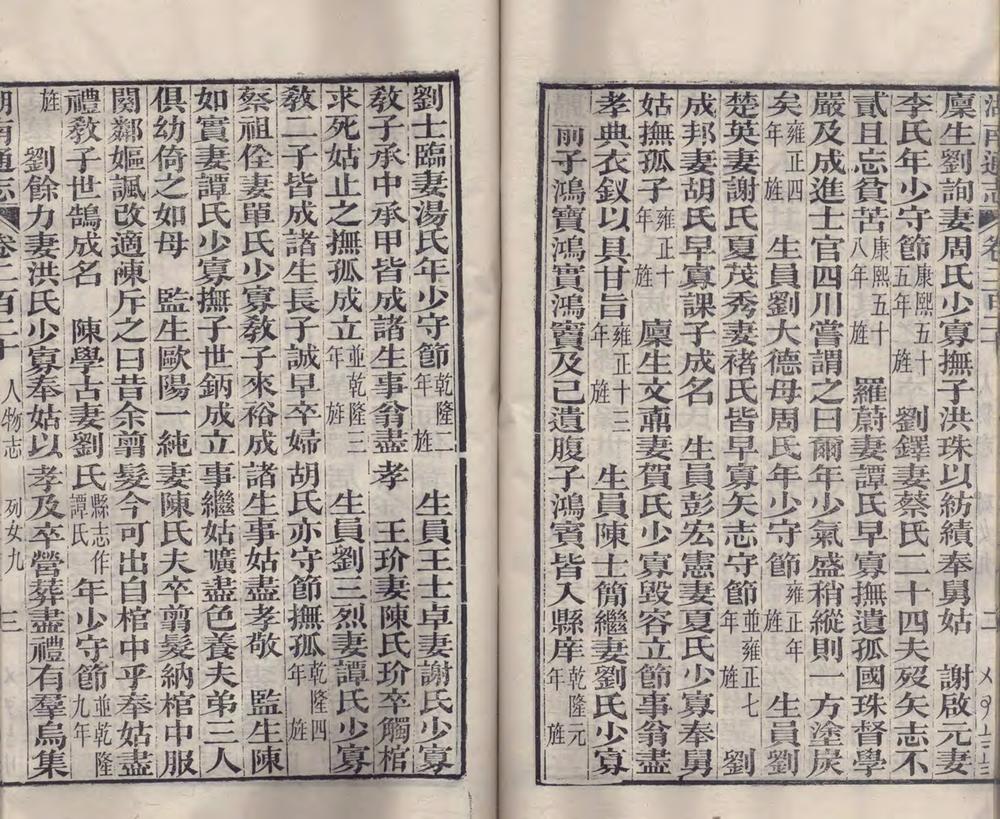 湖南通志 卷二百二十 二
廩生劉詢妻周氏少寡撫子洪珠以紡績奉舅姑 謝啟元妻
李氏年少守節康熙五十五年旌 劉鐸妻蔡氏二十四夫歿矢志不
貳且忘貧苦康熙五十八年旌 羅蔚妻譚氏早寡撫遺孤國珠督學
嚴及成進士官四川嘗謂之曰爾年少氣盛稍縱則一方塗炭
矣雍正四年旌 生員劉大德母周氏年少守節雍正年旌 生員劉
楚英妻謝氏夏茂秀妻褚氏皆早寡矢志守節並雍正七年旌 劉
成邦妻胡氏早寡課子成名 生員彭宏憲妻夏氏少寡奉舅
姑撫孤子雍正十年旌 廩生文鼐妻賀氏少寡毀容立節事翁盡
孝典衣釵以具甘旨雍正十三年旌 生員陳士簡繼妻劉氏少寡
前子鴻寶鴻實鴻賓及己遺腹子鴻賓皆入縣庠乾隆元年旌
劉士臨妻湯氏年少守節乾隆二年旌 生員王士卓妻謝氏少寡
教子承中承甲皆成諸生事翁盡孝 王玠妻陳氏玠卒觸棺
求死姑止之撫孤成立並乾隆三年旌 生員劉三烈妻譚氏少寡
教二子皆成諸生長子誠早卒婦胡氏亦守節撫孤乾隆四年旌
蔡祖佺妻單氏少寡教子來裕成諸生事姑盡孝敬 監生陳
如實妻譚氏少寡撫子世鈵成立事繼姑曠盡色養夫弟三人
俱幼倚之如母 監生歐陽一純妻陳氏夫卒剪髮納棺中服
闋鄰嫗諷改適陳斥之曰昔余翦髮今可出自棺中乎奉姑盡
禮教子世鵠成名 陳學古妻劉氏縣志作譚氏 年少守節並乾隆九年
旌 劉餘力妻洪氏少寡奉姑以孝及卒營葬盡禮有羣烏集
湖南通志 卷二百二十 人物志 列女九 三